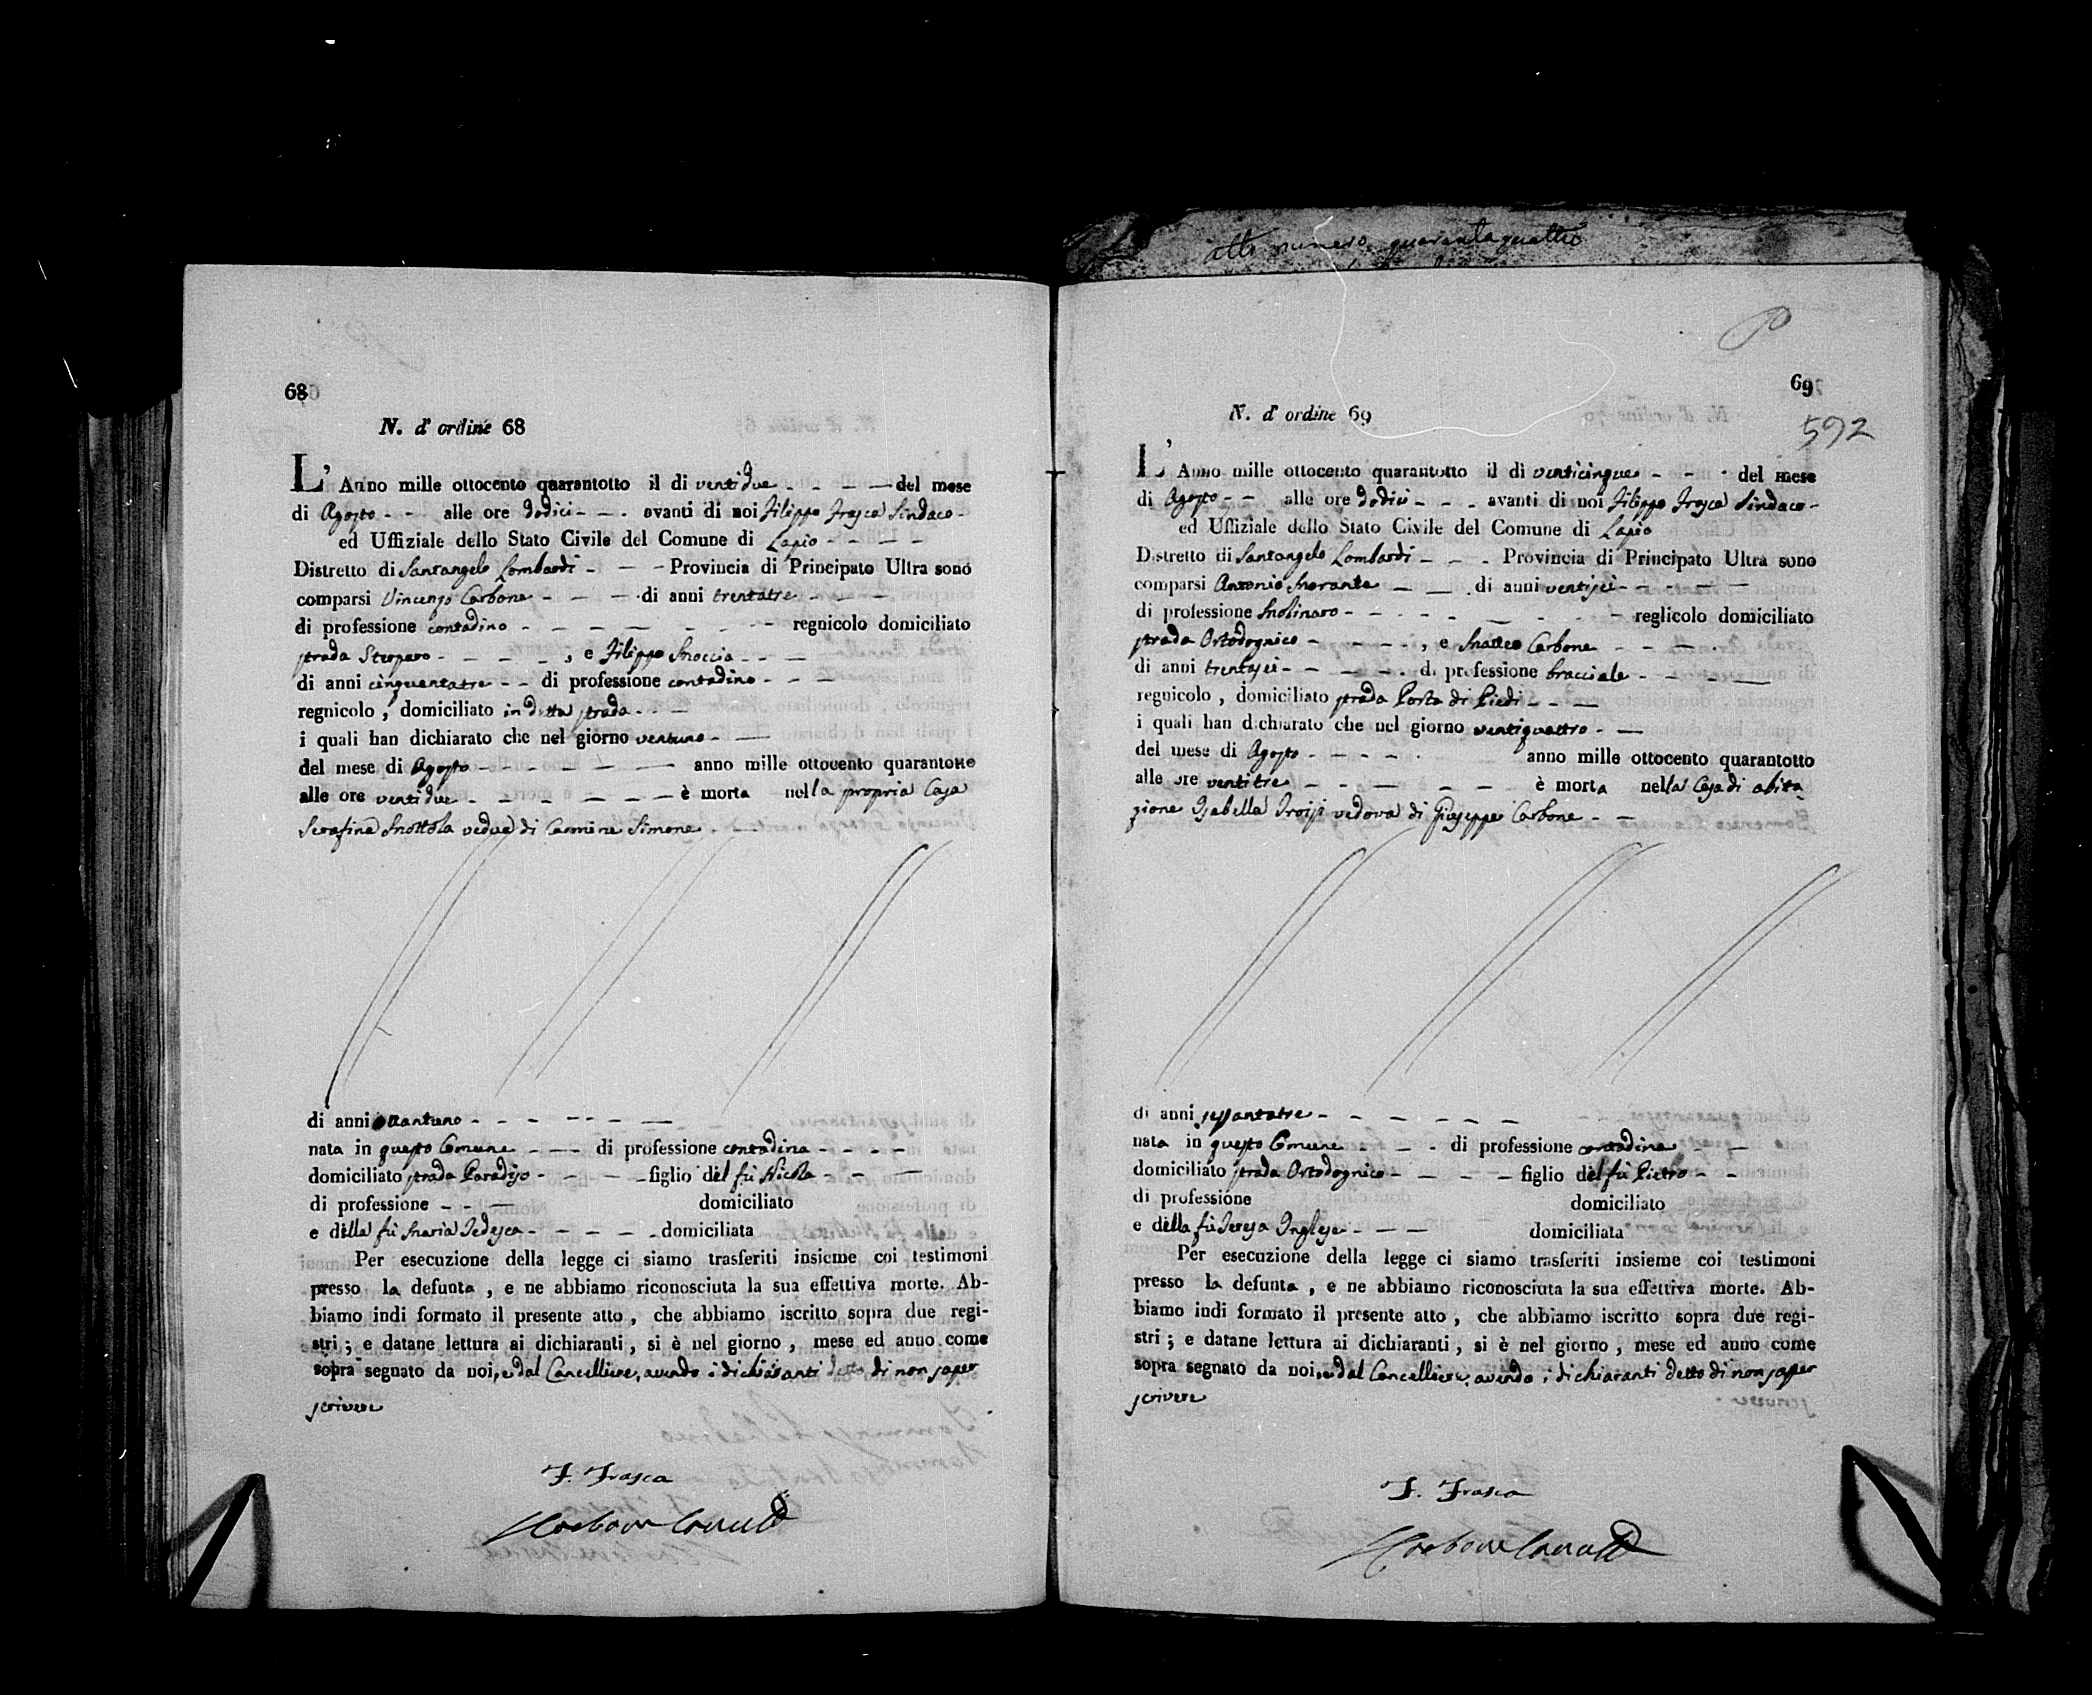 atto numero quarantaquattro
68
N. d' ordine 68
L' Anno mille ottocento quarantotto il dì ventidue - - - - del mese
di Agosto - - alle ore dodici - - - avanti di noi Filippo Frasca Sindaco -
ed Uffiziale dello Stato Civile del Comune di Lapio - - - -
Distretto di Santangelo Lombardi - - - Provincia di Principato Ultra sono
comparsi Vincenzo Carbone - - - di anni trentatre - - -
di professione contadino - - - - - - - regnicolo domiciliato
strada Sterparo - - - - , e Filippo Moccia - - -
di anni cinquantatre - - di professione contadino - - -
regnicolo , domiciliato in detta strada - - -
i quali han dichiarato che nel giorno ventuno - -
del mese di Agosto - - - - - - anno mille ottocento quarantotto
alle ore ventidue - - - - - - è morta nella propria Casa
Serafina Mottola vedua di Carmine Simone - -
di anni ottantuno - - - - - - -
nata in questo Comune - - - di professione contadina - - - -
domiciliato strada Paradiso - - - - figlio del fù Nicola - - -
di professione - - - domiciliato
e della fù Maria Tedesca - - - - domiciliata
Per esecuzione della legge ci siamo trasferiti insieme coi testimoni
presso la defunta , e ne abbiamo riconosciuta la sua effettiva morte. Ab-
biamo indi formato il presente atto , che abbiamo iscritto sopra due regi-
stri ; e datane lettura ai dichiaranti , si è nel giorno , mese ed anno come
sopra segnato da noi, e dal Cancelliere, avendo i dichiaranti detto di non saper
scrivere
F. Frasca
Carbone
69
592
N. d' ordine 69
L' Anno mille ottocento quarantotto il dì venticinque - - - del mese
di Agosto - - alle ore dodici - - - avanti di noi Filippo Frasca Sindaco -
ed Uffiziale dello Stato Civile del Comune di Lapio
Distretto di Santangelo Lombardi - - - Provincia di Principato Ultra sono
comparsi Antonio Morante - - di anni ventisei - - - -
di professione Molinaro - - - - - - - - reglicolo domiciliato
strada Ortodognico - - - - , e Matteo Carbone - - - .
di anni trentasei - - - - - di professione bracciale - - - -
regnicolo , domiciliato strada Porta di Piedi - - -
i quali han dichiarato che nel giorno ventiquattro - -
del mese di Agosto - - - - . anno mille ottocento quarantotto
alle ore ventitre - - - - - - è morta nella Casa di abita-
zione Isabella Troisi vedova di Giuseppe Carbone - -
di anni sessantatre - - - - - -
nata in questo Comune - - - di professione contadina - -
domiciliato strada Ortodognico - - - - figlio del fù Pietro - -
di professione domiciliato
e della fù Teresa Inglese - - - domiciliata
Per esecuzione della legge ci siamo trasferiti insieme coi testimoni
presso la defunta , e ne abbiamo riconosciuta la sua effettiva morte. Ab-
biamo indi formato il presente atto , che abbiamo iscritto sopra due regi-
stri ; e datane lettura ai dichiaranti , si è nel giorno , mese ed anno come
sopra segnato da noi, e dal Cancelliere, avendo i dichiaranti detto di non saper
scrivere
F. Frasca
Carbone